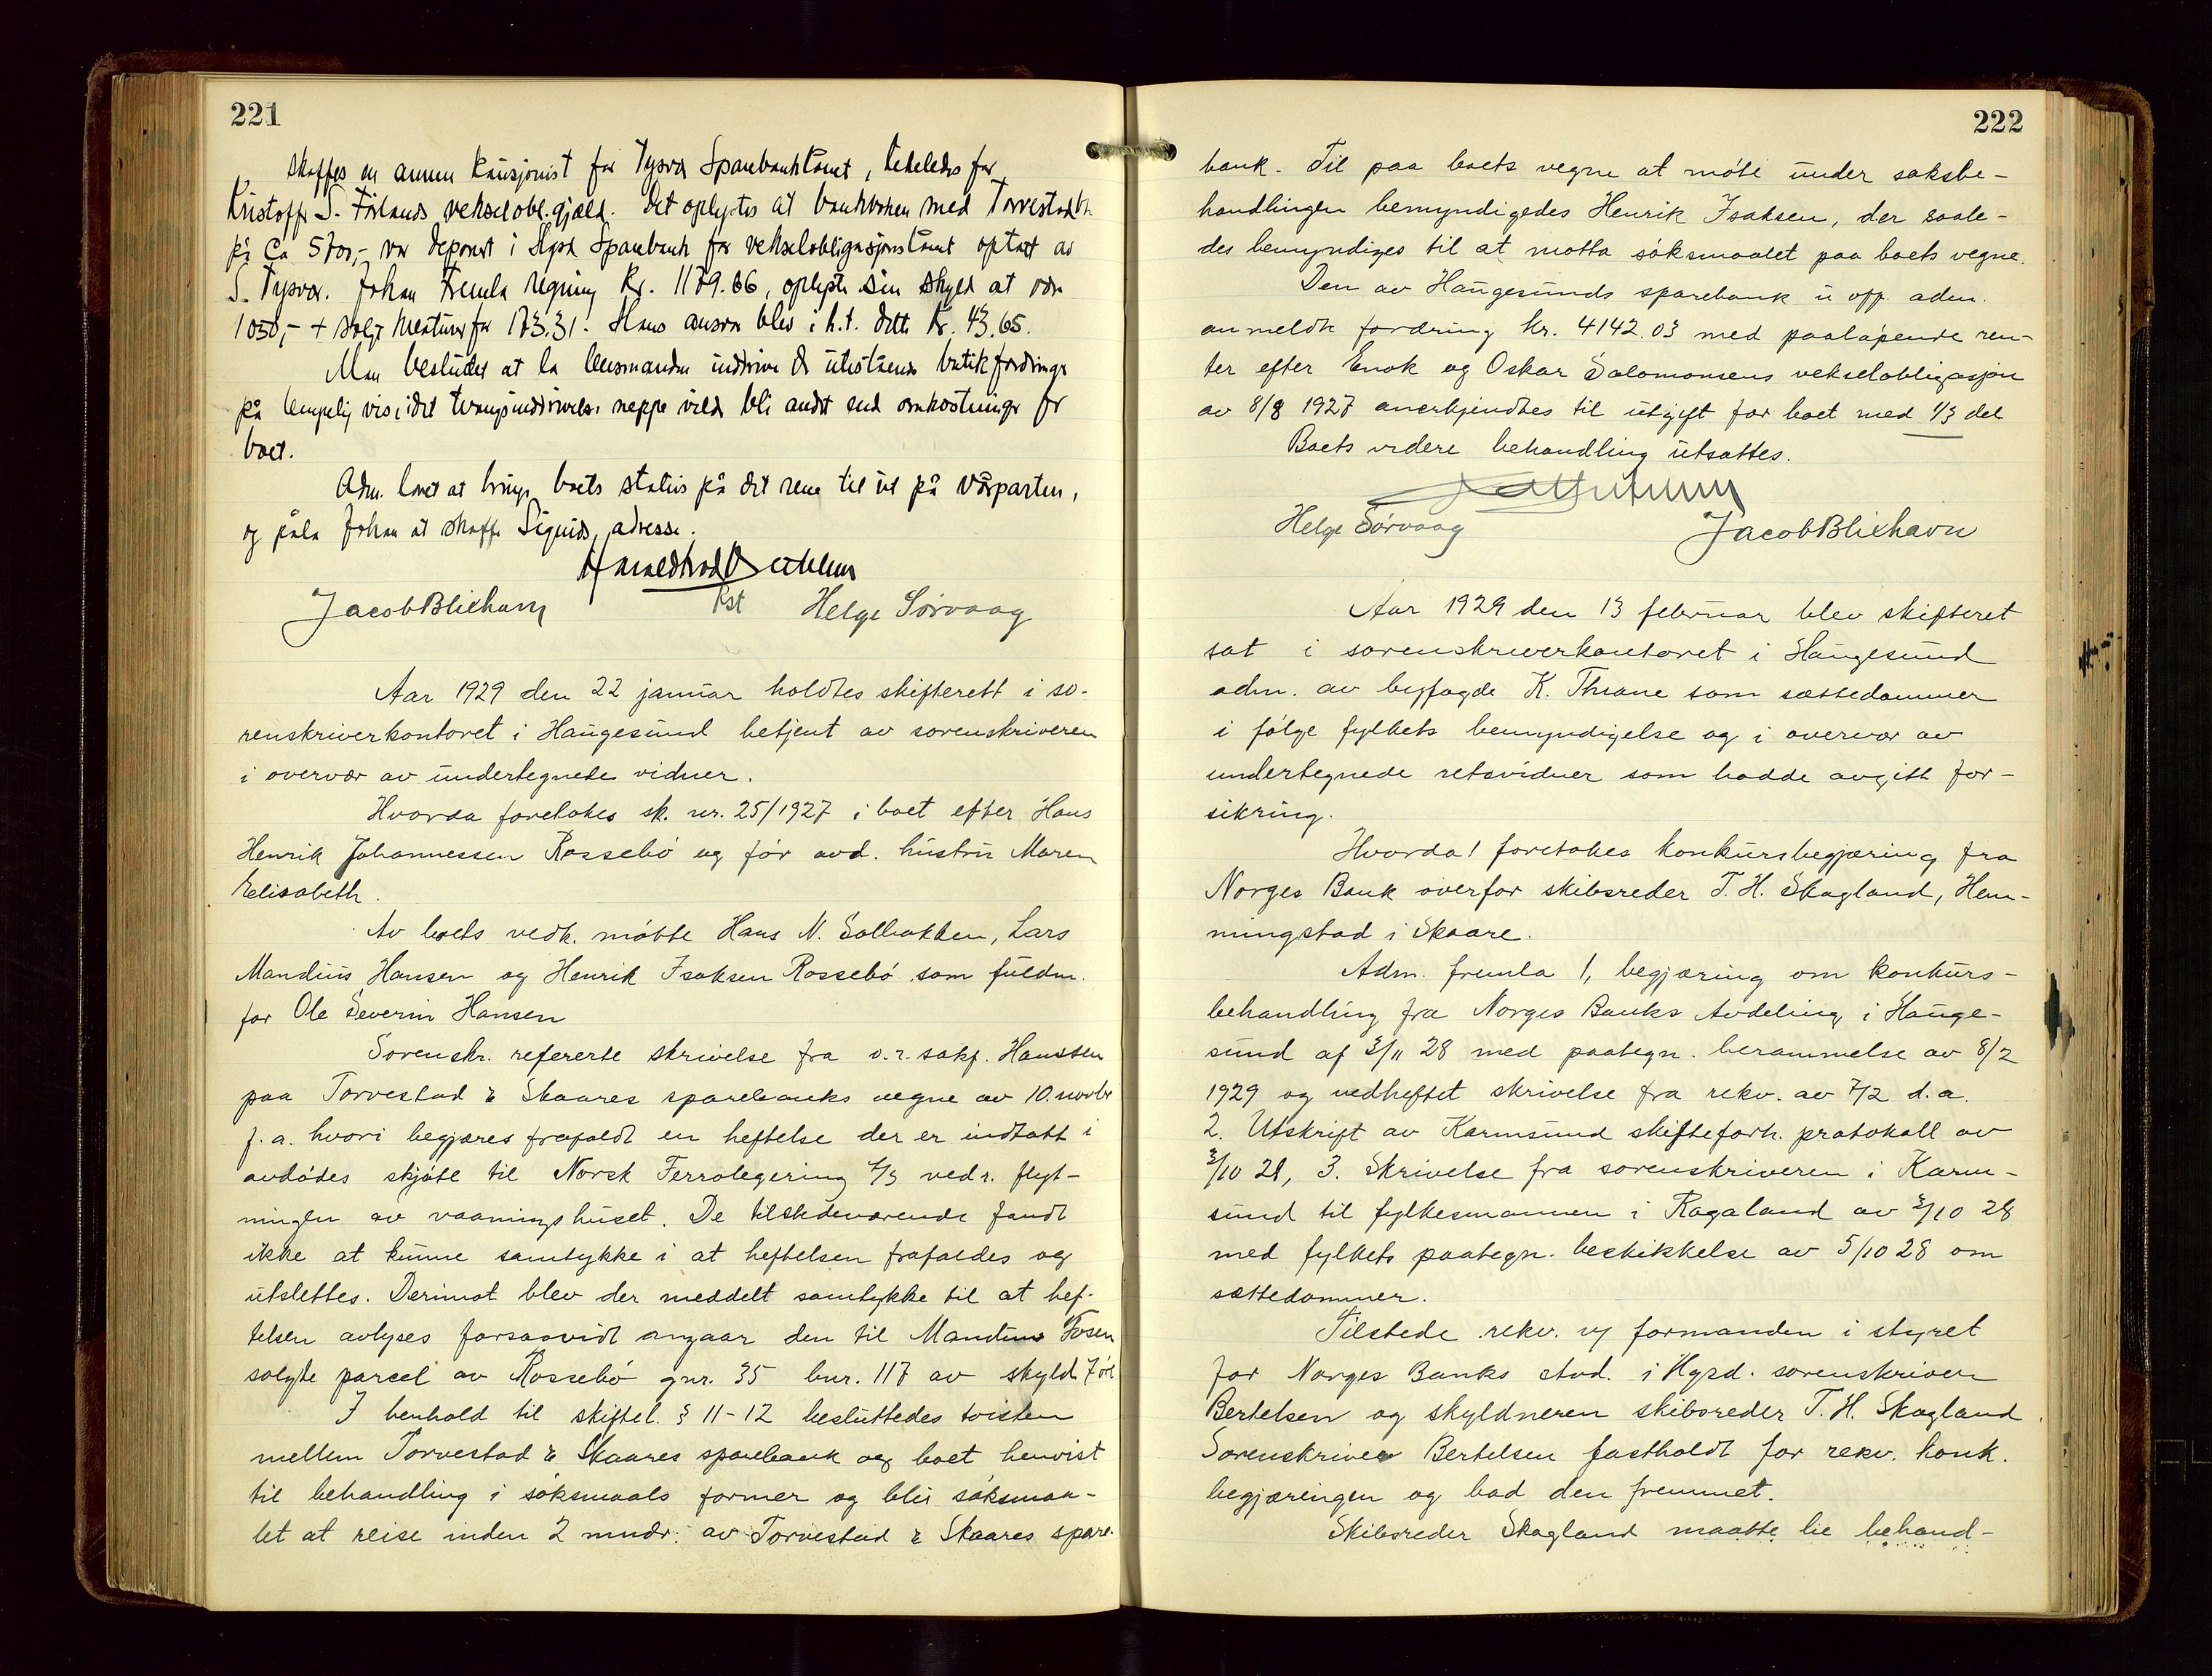 221
skaffes en annen kausjonist for Tysvær Sparebanklånet, likeledes for
Kristoffer S. Førlands vekselobl.gjæld. Det oplystes at bankboken med Torvestad
på ca 5700,- var deponert i Hgsd Sparebank for vekselobligasjonslånet optatt av
S. Tysvær. Johan fremla regning kr. 1179.66, oplyste sin skyld at være
1050,- + solgt kreaturer for 173.31. Hans ansvar blev i h.t. dette kr. 43.65.
Man besluttet at la lensmanden inddrive de utestående butikfordringer
på lempelig vis, idet tvangsinddrivelse neppe vilde bli andet end omkostninger for
boet.
Adm. lovet at bringe boets status på det rene til ut på vårparten,
og påla Johan at skaffe Sigurds adresse.
Jacob Blikhavn
Helge Sørvaag
Aar 1929 den 22 januar holdtes skifterett i so-
renskriverkontoret i Haugesund betjent av sorenskriveren
i overvær av undertegnede vidner.
Hvorda foretokes sk. nr. 25/1927 i boet efter Hans
Henrik Johannessen Rossebø og før avd. hustru Maren
Elisabeth.
Av boets vedk. møtte Hans N. Solbakken, Lars
Mandius Hansen og Henrik Isaksen Rossebø som fuldm.
for Ole Severin Hansen
Sorenskr. refererte skrivelse fra o.r.sakf. Hanssen
paa Torvestad & Skaares sparebanks vegne av 10. novbr
f.a. hvori begjæres frafaldt en heftelse der er indtatt i
avdødes skjøte til Norsk Ferrolegering A/S vedr. flyt-
ningen av vaaningshuset. De tilstedeværende fandt
ikke at kunne samtykke i at heftelsen frafaldes og
utslettes. Derimot blev der meddelt samtykke til at hef-
telsen avlyses forsaavidt angaar den til Mandius Tosen
solgte parcel av Rossebø gnr. 35 bnr. 117 av skyld 7 øre
I henhold til skiftel. § 11-12 besluttedes tvisten
mellem Torvestad & Skaares sparebank og boet henvist
til behandling i søksmaals former og blir søksmaa-
let at reise inden 2 mndr. av Torvestad & Skaares spare-
222
bank. Til paa boets vegne at møte under saksbe-
handlingen bemyndigedes Henrik Isaksen, der saale-
des bemyndiges til at motta søksmaalet paa boets vegne.
Den av Haugesunds sparebank u off. adm.
anmeldte fordring kr. 4142.03 med paaløpende ren-
ter efter Enok og Oskar Salomonsens vekselobligasjon
av 8/8 1927 anerkjendtes til utgift for boet med 1/3 del
Boets videre behandling utsattes.
Helge Sørvaag
Jacob Blikhavn
Aar 1929 den 13 februar blev skifteret
sat i sorenskriverkontoret i Haugesund
adm. av byfogde K. Thrane som sættedommer
i følge fylkets bemyndigelse og i overvær av
undertegnede retsvidner som hadde avgitt for-
sikring.
Hvorda! foretokes konkursbegjæring fra
Norges Bank overfor skibsreder T. H. Skogland, Hem-
mingstad i Skaare.
Adm. fremla 1, begjæring om konkurs-
behandling fra Norges Banks Avdeling i Hauge-
sund af 3/11 28 med paategn. berammelse av 8/2
1929 og vedheftet skrivelse fra rekv. av 7/2 d.a.
2. Utskrift av Karmsund skifteforh. protokoll av
3/10 28, 3. Skrivelse fra sorenskriveren i Karm-
sund til fylkesmannen i Rogaland av 3/10 28
med fylkets paategn. beskikkelse av 5/10 28 om
sættedommer.
Tilstede rekv. v/ formanden i styret
for Norges Banks Avd. i Hgsd. sorenskriver
Bertelsen og skyldneren skibsreder T. H. Skogland.
Sorenskriver Bertelsen fastholdt for rekv. konk.
begjæringen og bad den fremmet.
Skibsreder Skogland maatte lie behand-